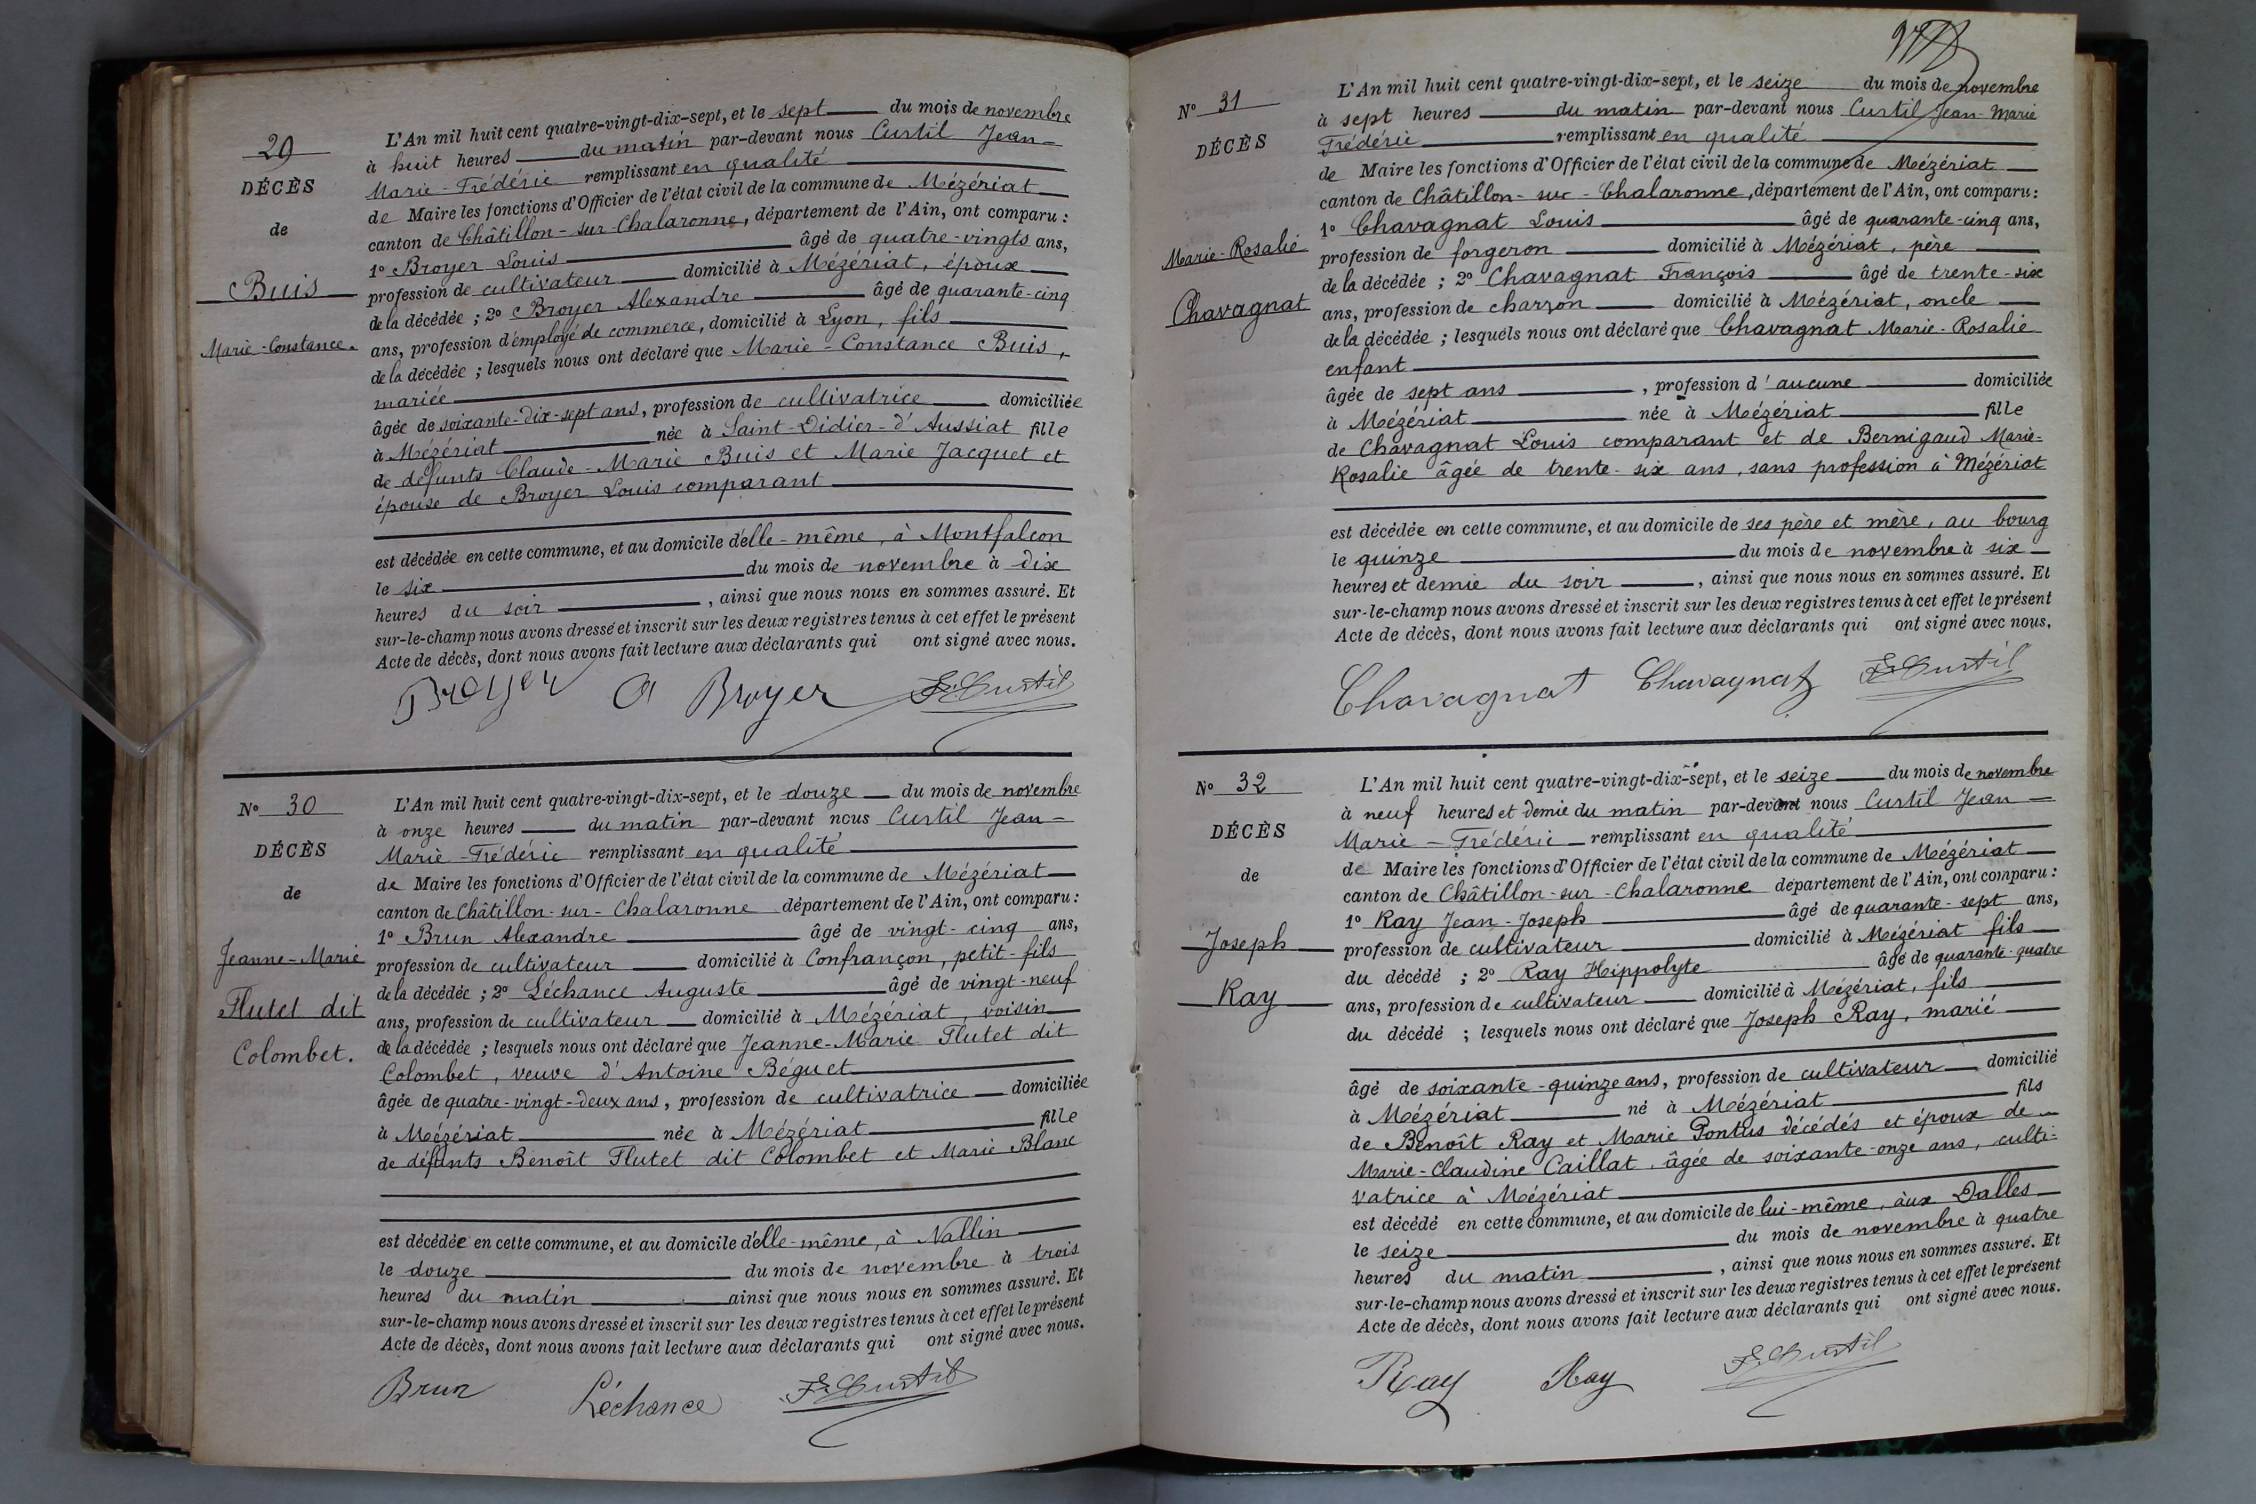 29
DÉCÈS
de
Buis
Marie-Constance.
L'An mil huit cent quatre-vingt-dix-sept, et le sept du mois de novembre
à huit heures du matin par-devant nous Curtil Jean-
Marie-Frédéric remplissant en qualité
de Maire les fonctions d'Officier de l'état civil de la commune de Mézériat
canton de Châtillon-sur-Chalaronne, département de l'Ain, ont comparu :
1º Broyer Louis âgé de quatre-vingts ans,
profession de cultivateur domicilié à Mézériat, époux
de la décédée ; 2º Broyer Alexandre âgé de quarante-cinq
ans, profession d'employé de commerce, domicilié à Lyon, fils
de la décédée ; lesquels nous ont déclaré que Marie-Constance Buis,
mariée
âgée de soixante-dix-sept ans, profession de cultivatrice domiciliée
à Mézériat née à Saint-Didier-d'Aussiat fille
de défunts Claude-Marie Buis et Marie Jacquet et
épouse de Broyer Louis comparant
est décédée en cette commune, et au domicile d'elle-même, à Montfalcon
le six du mois de novembre à dix
heures du soir, ainsi que nous nous en sommes assuré. Et
sur-le-champ nous avons dressé et inscrit sur les deux registres tenus à cet effet le présent
Acte de décès, dont nous avons fait lecture aux déclarants qui ont signé avec nous.
Broyer A Broyer F. Curtil
Nº 30
DÉCÈS
de
Jeanne-Marie
Flutet dit
Colombet.
L'An mil huit cent quatre-vingt-dix-sept, et le douze du mois de novembre
à onze heures du matin par-devant nous Curtil Jean-
Marie-Frédéric remplissant en qualité
de Maire les fonctions d'Officier de l'état civil de la commune de Mézériat
canton de Châtillon-sur-Chalaronne département de l'Ain, ont comparu :
1º Brun Alexandre âgé de vingt-cinq ans,
profession de cultivateur domicilié à Confrançon, petit-fils
de la décédée ; 2º Léchance Auguste âgé de vingt-neuf
ans, profession de cultivateur domicilié à Mézériat, voisin
de la décédée ; lesquels nous ont déclaré que Jeanne-Marie Flutet dit
Colombet, veuve d'Antoine Béguet
âgée de quatre-vingt-deux ans, profession de cultivatrice domiciliée
à Mézériat née à Mézériat fille
de défunts Benoît Flutet dit Colombet et Marie Blanc
est décédée en cette commune, et au domicile d'elle-même, à Nallin
le douze du mois de novembre à trois
heures du matin ainsi que nous nous en sommes assuré. Et
sur-le-champ nous avons dressé et inscrit sur les deux registres tenus à cet effet le présent
Acte de décès, dont nous avons fait lecture aux déclarants qui ont signé avec nous.
Brun Léchance F. Curtil
Nº 31
DÉCÈS
Marie-Rosalie
Chavagnat
L'An mil huit cent quatre-vingt-dix-sept, et le seize du mois de novembre
à sept heures du matin par-devant nous Curtil Jean-Marie
Frédéric remplissant en qualité
de Maire les fonctions d'Officier de l'état civil de la commune de Mézériat
canton de Châtillon-sur-Chalaronne, département de l'Ain, ont comparu :
1º Chavagnat Louis âgé de quarante-cinq ans,
profession de forgeron domicilié à Mézériat, père
de la décédée ; 2º Chavagnat François âgé de trente-six
ans, profession de charron domicilié à Mézériat, oncle
de la décédée ; lesquels nous ont déclaré que Chavagnat Marie-Rosalie
enfant
âgée de sept ans, profession d'aucune domiciliée
à Mézériat née à Mézériat fille
de Chavagnat Louis comparant et de Bernigaud Marie-
Rosalie âgée de trente-six ans, sans profession à Mézériat
est décédée en cette commune, et au domicile de ses père et mère, au bourg
le quinze du mois de novembre à six
heures et demie du soir, ainsi que nous nous en sommes assuré. Et
sur-le-champ nous avons dressé et inscrit sur les deux registres tenus à cet effet le présent
Acte de décès, dont nous avons fait lecture aux déclarants qui ont signé avec nous.
Chavagnat Chavagnat F. Curtil
Nº 32
DÉCÈS
de
Joseph
Ray
L'An mil huit cent quatre-vingt-dix-sept, et le seize du mois de novembre
à neuf heures et demie du matin par-devant nous Curtil Jean-
Marie-Frédéric remplissant en qualité
de Maire les fonctions d'Officier de l'état civil de la commune de Mézériat
canton de Châtillon-sur-Chalaronne département de l'Ain, ont comparu :
1º Ray Jean-Joseph âgé de quarante-sept ans,
profession de cultivateur domicilié à Mézériat fils
du décédé ; 2º Ray Hippolyte âgé de quarante-quatre
ans, profession de cultivateur domicilié à Mézériat, fils
du décédé ; lesquels nous ont déclaré que Joseph Ray, marié
âgé de soixante-quinze ans, profession de cultivateur domicilié
à Mézériat né à Mézériat fils
de Benoît Ray et Marie Pontus décédés et époux de
Marie-Claudine Caillat, âgée de soixante-onze ans, culti-
vatrice à Mézériat
est décédé en cette commune, et au domicile de lui-même, aux Dalles
le seize du mois de novembre à quatre
heures du matin, ainsi que nous nous en sommes assuré. Et
sur-le-champ nous avons dressé et inscrit sur les deux registres tenus à cet effet le présent
Acte de décès, dont nous avons fait lecture aux déclarants qui ont signé avec nous.
Ray Ray F. Curtil